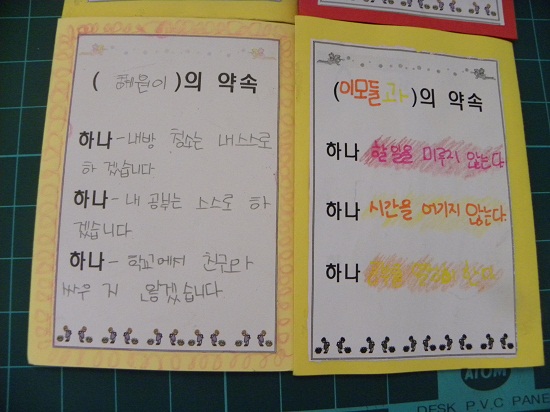 ( 혜원이 )의 약속
하나 - 내방 청소는 내스스로
하 겠습니다
하나 - 내 공부는 스스로 하
겠습니다
하나 - 학교에서 친구와
싸우 지 않겠습니다.
(이모들과)의 약속
하나 할일을 미루지 않는다.
하나 시간을 어기지 않는다.
하나
ATOM
DESK P.V.C PANE